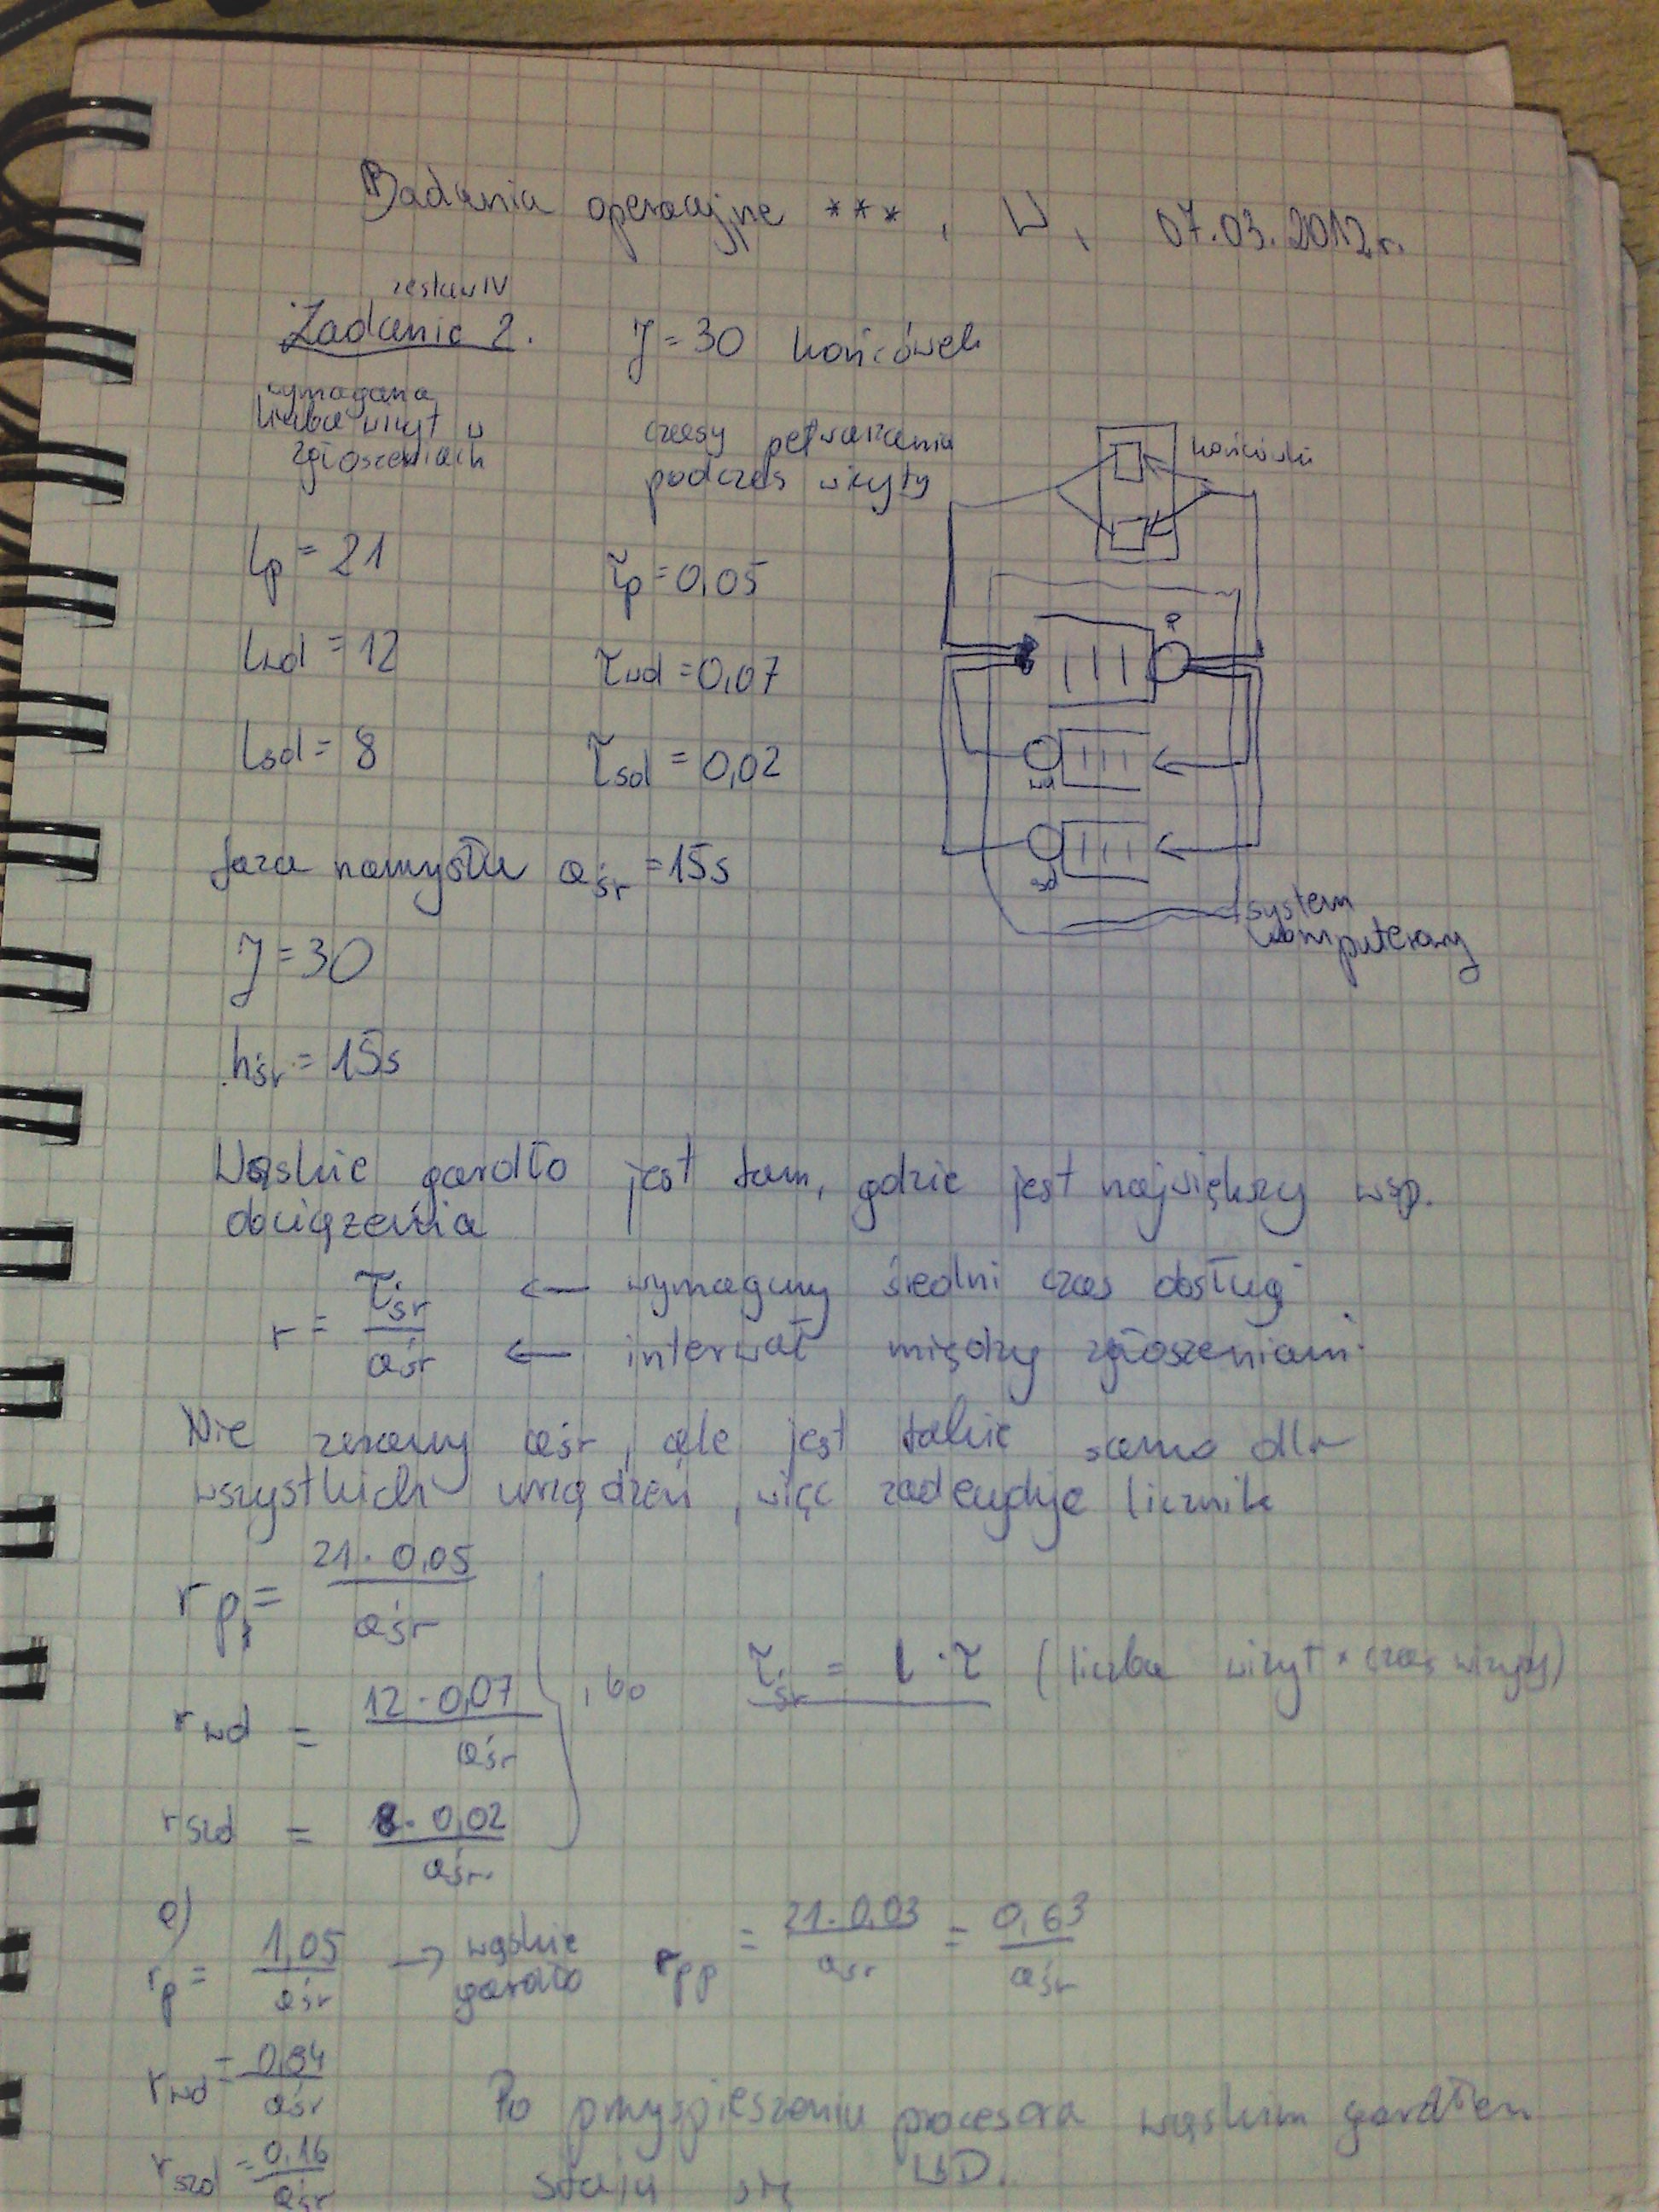 Badania operacyjne ***, W, 07.03.2012r.
zestaw IV
Zadanie 2. J = 30 końcówek
wymagana
liczba wizyt w
zgłoszeniach
czasy petwarzania
podczas wizyty
końcówki
lp = 21 τp = 0,05
P
lwd = 12 τwd = 0,07
lsd = 8 τsd = 0,02
wd
sd
faza namysłu aśr = 15s
system
komputerowy
J = 30
hśr = 15s
Wąskie gardło jest tam, gdzie jest największy wsp.
obciążenia
r = τśr / aśr
← wymagany średni czas obsługi
← interwał między zgłoszeniami
Nie znamy aśr, ale jest takie samo dla
wszystkich urządzeń, więc zadecyduje licznik
rp = 21 · 0,05 / aśr
rwd = 12 · 0,07 / aśr , bo τśr = l · τ (liczba wizyt * czas wizyty)
rszd = 8 · 0,02 / aśr
a)
rp = 1,05 / aśr → wąskie gardło rpp = 21 · 0,03 / aśr = 0,63 / aśr
rwd = 0,84 / aśr
Po przyspieszeniu procesora wąskim gardłem
rszd = 0,16 / aśr
stanie się WD.